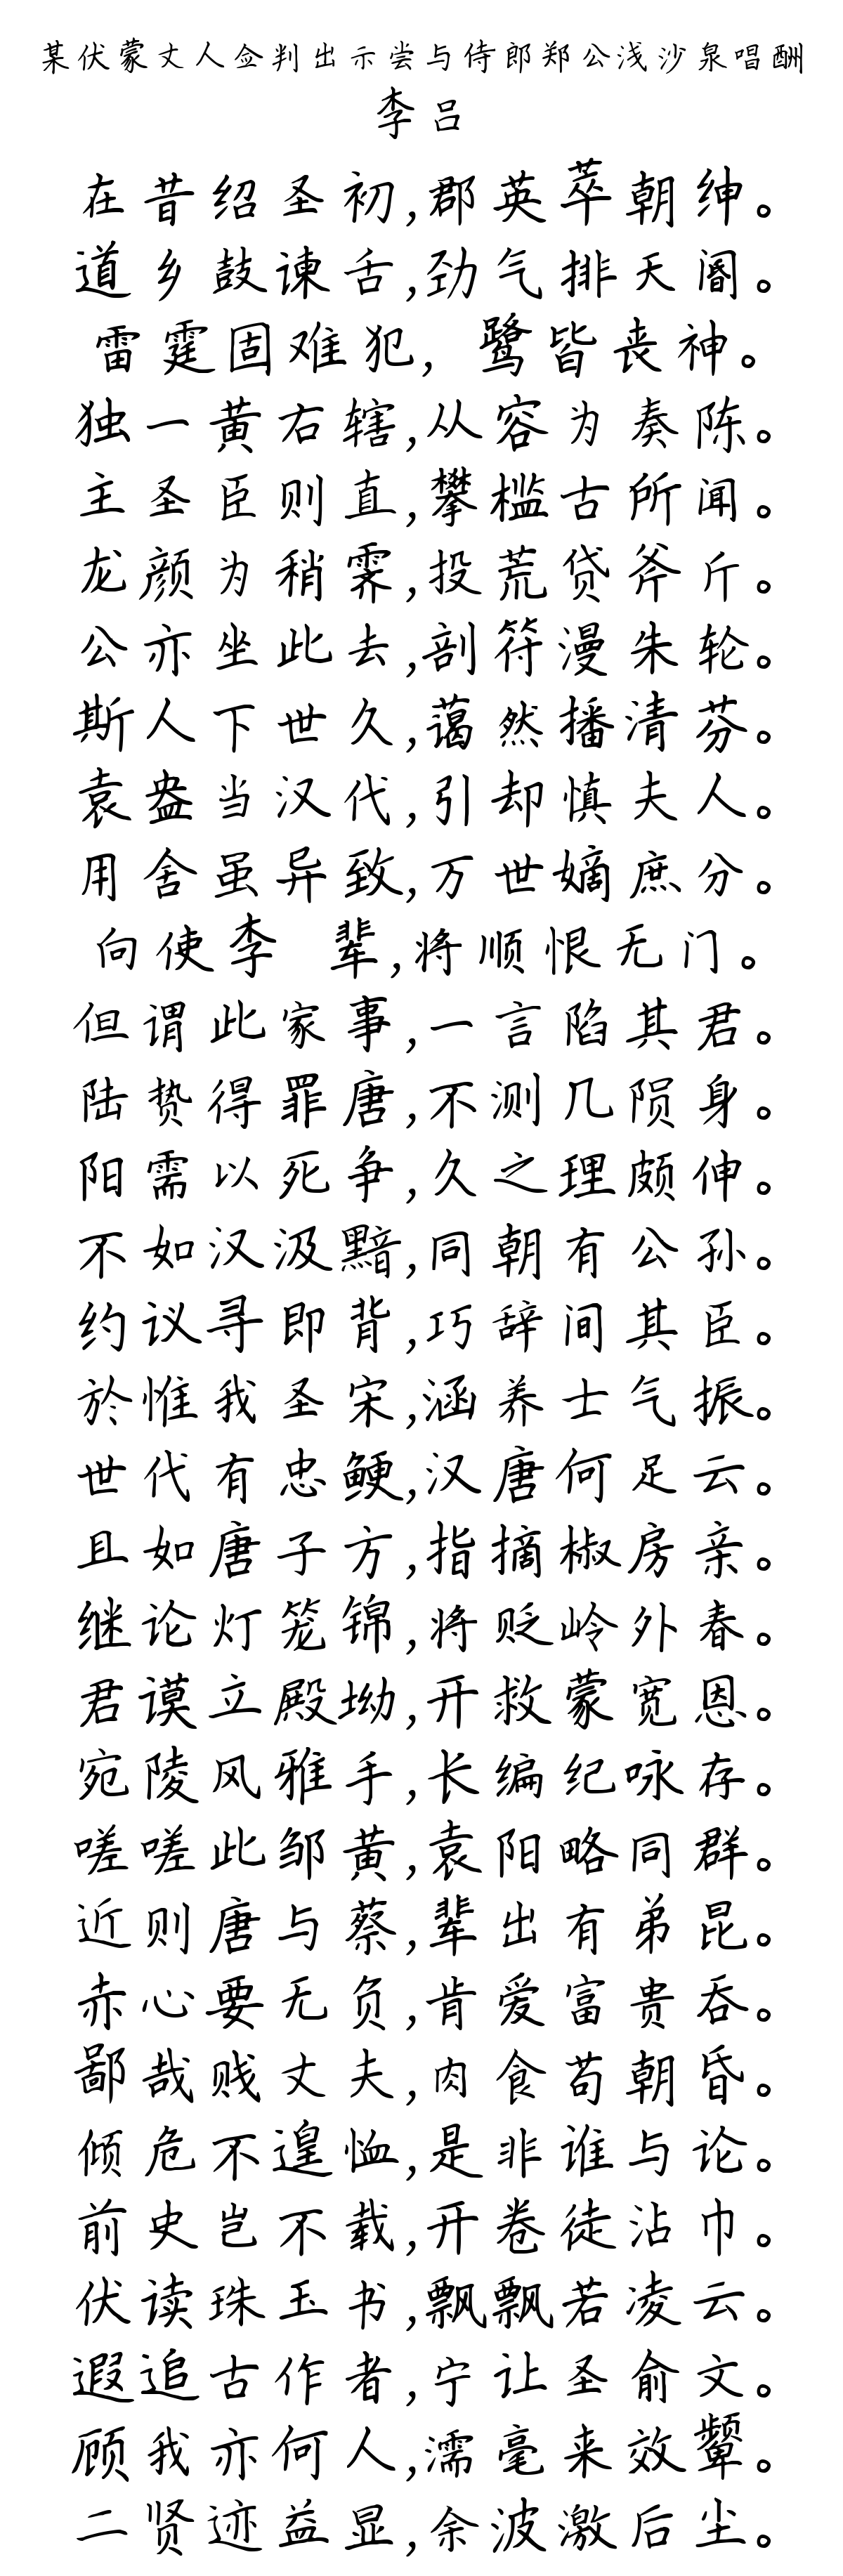 某伏蒙丈人佥判出示尝与侍郎郑公浅沙泉唱酬
李吕
在昔绍圣初,郡英萃朝绅。
道乡鼓谏舌,劲气排天阍。
雷霆固难犯, 鹭皆丧神。
独一黄右辖,从容为奏陈。
主圣臣则直,攀槛古所闻。
龙颜为稍霁,投荒贷斧斤。
公亦坐此去,剖符漫朱轮。
斯人下世久,蔼然播清芬。
袁盎当汉代,引却慎夫人。
用舍虽异致,万世嫡庶分。
向使李 辈,将顺恨无门。
但谓此家事,一言陷其君。
陆贽得罪唐,不测几陨身。
阳需以死争,久之理颇伸。
不如汉汲黯,同朝有公孙。
约议寻即背,巧辞间其臣。
於惟我圣宋,涵养士气振。
世代有忠鲠,汉唐何足云。
且如唐子方,指摘椒房亲。
继论灯笼锦,将贬岭外春。
君谟立殿坳,开救蒙宽恩。
宛陵风雅手,长编纪咏存。
嗟嗟此邹黄,袁阳略同群。
近则唐与蔡,辈出有弟昆。
赤心要无负,肯爱富贵吞。
鄙哉贱丈夫,肉食苟朝昏。
倾危不遑恤,是非谁与论。
前史岂不载,开卷徒沾巾。
伏读珠玉书,飘飘若凌云。
遐追古作者,宁让圣俞文。
顾我亦何人,濡毫来效颦。
二贤迹益显,余波激后尘。